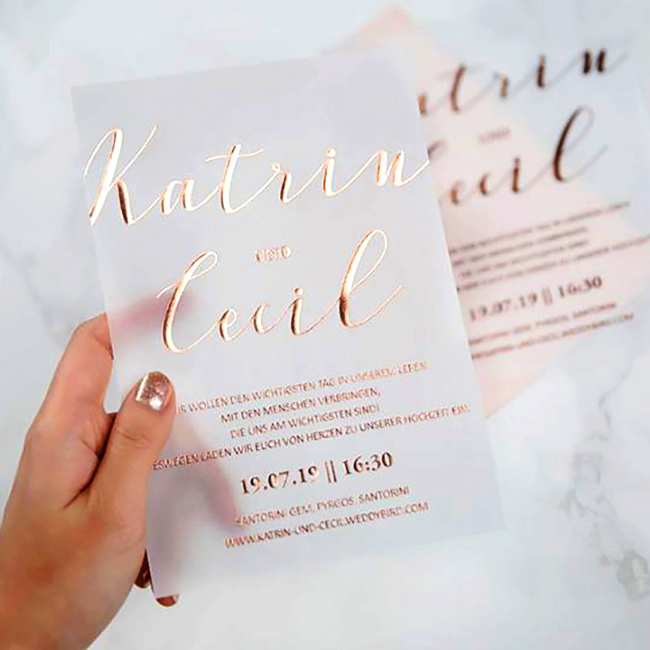 Katrin
UND
Cecil
WIR WOLLEN DEN WICHTIGSTEN TAG IN UNSEREM LEBEN
MIT DEN MENSCHEN VERBRINGEN,
DIE UNS AM WICHTIGSTEN SIND!
ESWEGEN LADEN WIR EUCH VON HERZEN ZU UNSERER HOCHZEIT EIN.
19.07.19 || 16:30
SANTORINI GEM, PYRGOS, SANTORINI
WWW.KATRIN-UND-CECIL.WEDDYBIRD.COM
atrin
UND
ecil
19.07.19 || 16:30
SANTORINI GEM, PYRGOS, SANTORINI
KATRIN-UND-CECIL.WEDDYBIRD.COM